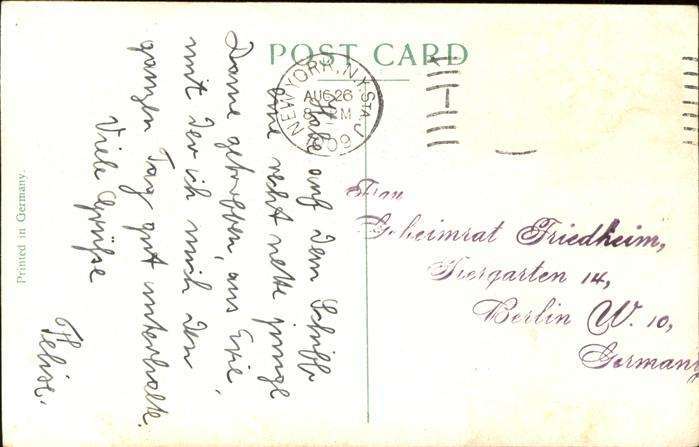 POST CARD
NEW YORK, N.Y. STA. J
AUG 26
8 PM
1909
Habe auf dem Schiffe
eine recht nette junge
Dame getroffen, aus Erie,
mit der ich mich den
ganzen Tag gut unterhalte.
Viele Grüsse
Felise.
Frau
Geheimrat Friedheim,
Tiergarten 14,
Berlin W. 10,
Germany
Printed in Germany.